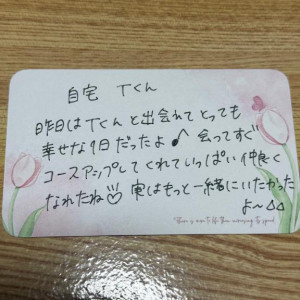 自宅 Tくん
昨日はTくんと出会れてとっても
幸せな1日だったよ♪ 会ってすぐ
コースアップしてくれていっぱい仲良く
なれたね♡ 実はもっと一緒にいたかった
よ〜△△
There is more to life than increasing its speed.